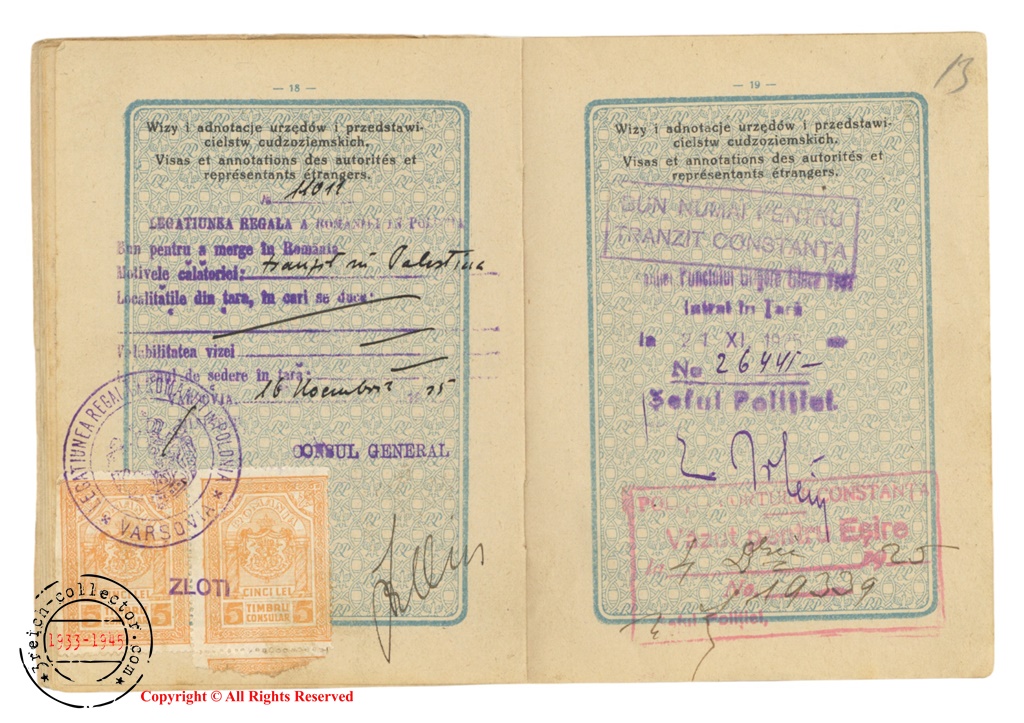 13
— 18 —
Wizy i adnotacje urzędów i przedstawi-
cielstw cudzoziemskich.
Visas et annotations des autorités et
représentants étrangers.
11011
LEGATIUNEA REGALA A ROMANIEI IN POLONIA
Bun pentru a merge în România
Motivele călătoriei: tranzit în Palestina
Localitățile din țara, în cari se duce:
Valabilitatea vizei
de sedere în țară:
VARSOVIA 16 Noembrie 1925
CONSUL GENERAL
LEGATIUNEA REGALA A ROMANIEI IN POLONIA
★ VARSOVIA ★
ROMANIA
CINCI LEI
5 TIMBRU 5
CONSULAR
ZŁOTI
CINCI LEI
5 TIMBRU 5
CONSULAR
— 19 —
Wizy i adnotacje urzędów i przedstawi-
cielstw cudzoziemskich.
Visas et annotations des autorités et
représentants étrangers.
BUN NUMAI PENTRU
TRANZIT CONSTANȚA
Punctului Grigore Ghica Vodă
Intrat în Țară
la 21 XI 1925
No 26441-
Șeful Poliției.
POLIȚIA PORTULUI CONSTANȚA
Văzut pentru Eșire
la 4 925
No. 19339
Șeful Poliției,
3reich-collector.com
1933-1945
Copyright © All Rights Reserved